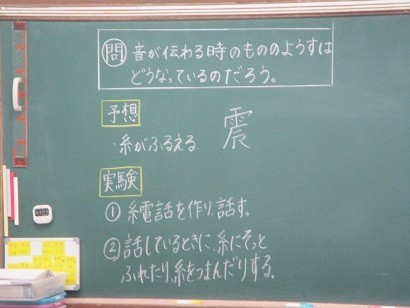 問 音が伝わる時のもののようすは
どうなっているのだろう。
予想
・糸がふるえる 震
実験
① 糸電話を作り、話す。
② 話しているときに、糸にそっと
ふれたり、糸をつまんだりする。